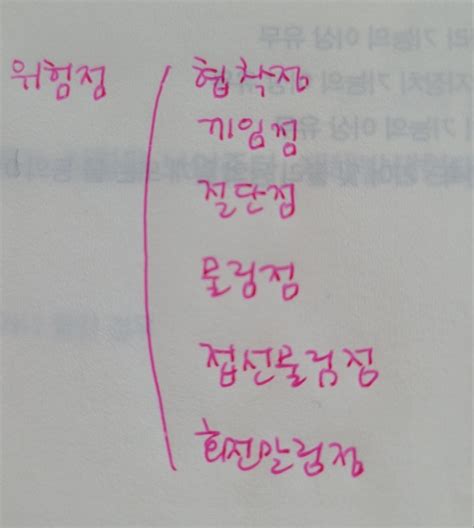 위험점
협착점
끼임점
절단점
물림점
접선물림점
회전말림점